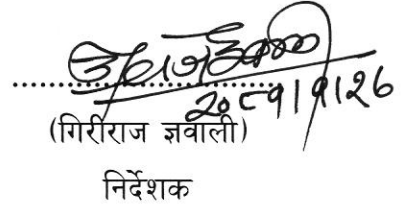 २०८१।१।२६
(गिरीराज ज्ञवाली)
निर्देशक